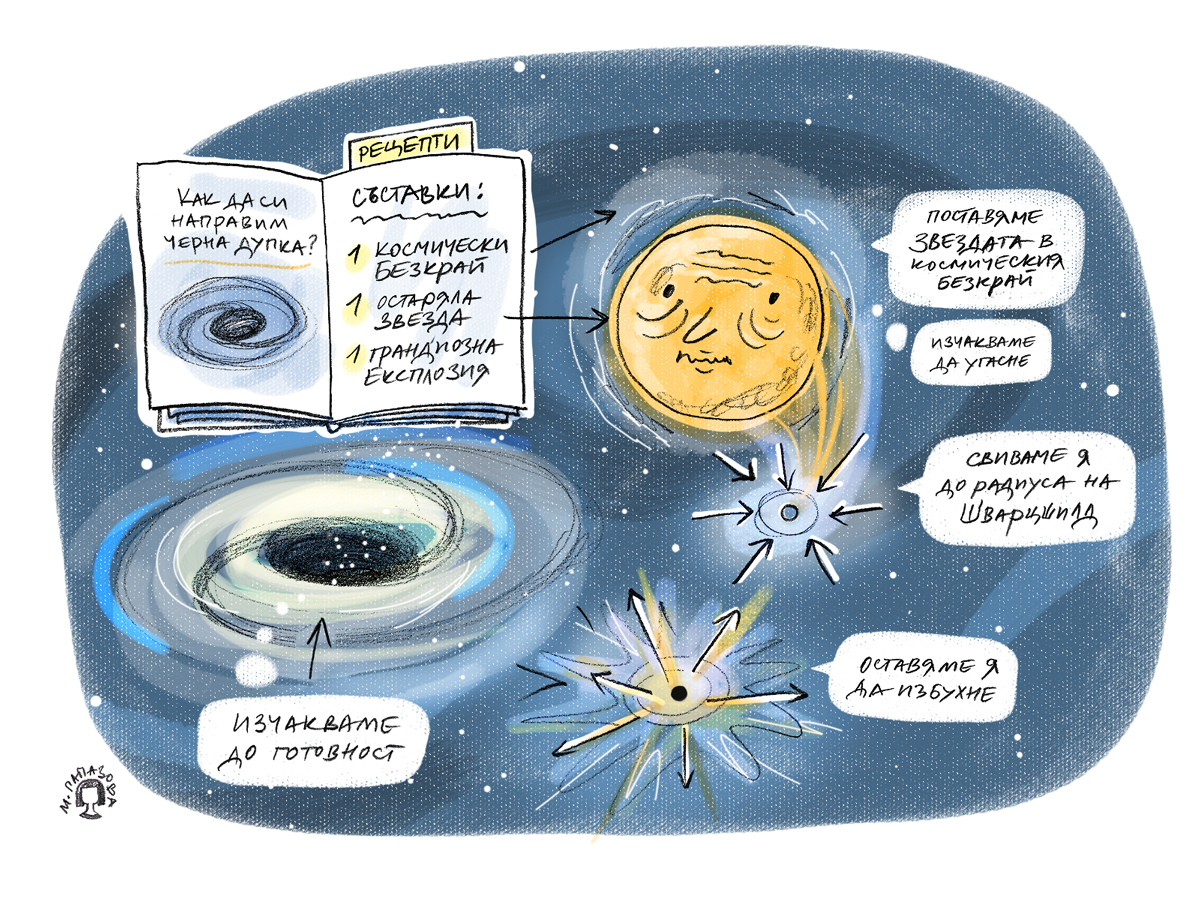 РЕЦЕПТИ
КАК ДА СИ
НАПРАВИМ
ЧЕРНА ДУПКА?
СЪСТАВКИ:
1 КОСМИЧЕСКИ
БЕЗКРАЙ
1 ОСТАРЯЛА
ЗВЕЗДА
1 ГРАНДИОЗНА
ЕКСПЛОЗИЯ
ПОСТАВЯМЕ
ЗВЕЗДАТА В
КОСМИЧЕСКИЯ
БЕЗКРАЙ
ИЗЧАКВАМЕ
ДА УГАСНЕ
СВИВАМЕ Я
ДО РАДИУСА НА
ШВАРЦШИЛД
ОСТАВЯМЕ Я
ДА ИЗБУХНЕ
ИЗЧАКВАМЕ
ДО ГОТОВНОСТ
М. ПАПАЗОВА